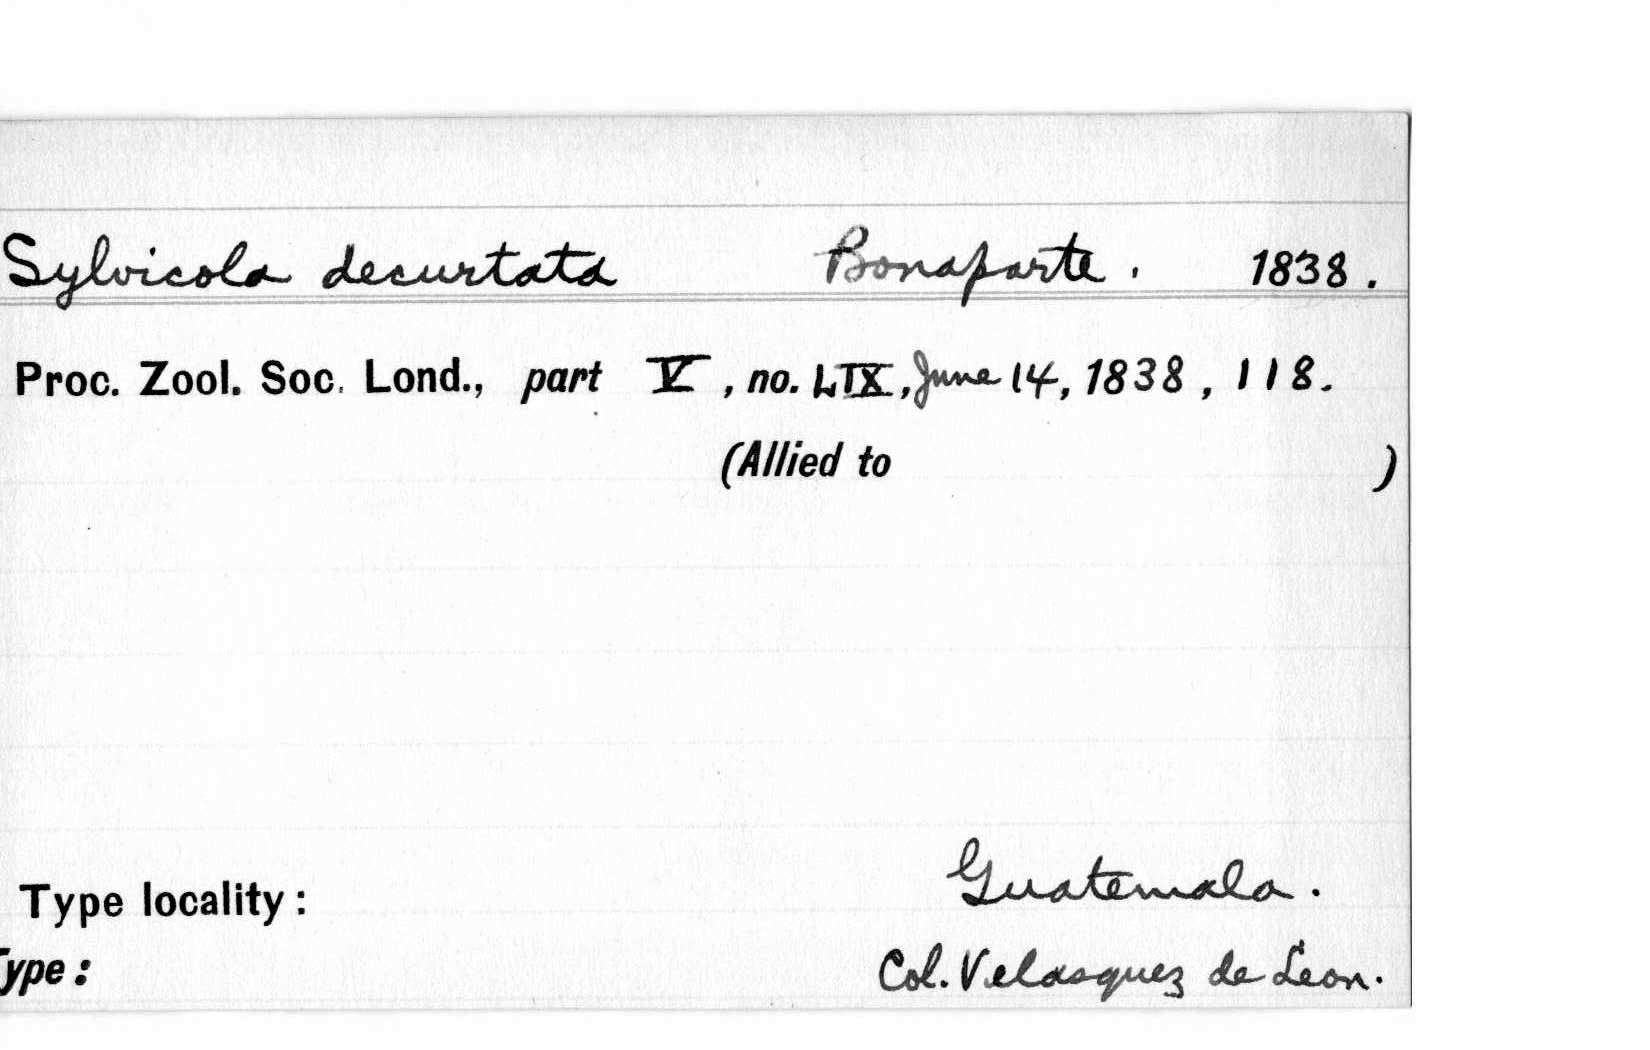 Sylvicola decurtata Bonaparte. 1838.
Proc. Zool. Soc. Lond., part V, no. LIX, June 14, 1838, 118.
(Allied to )
Type locality: Guatemala.
Type: Col. Velasquez de Leon.